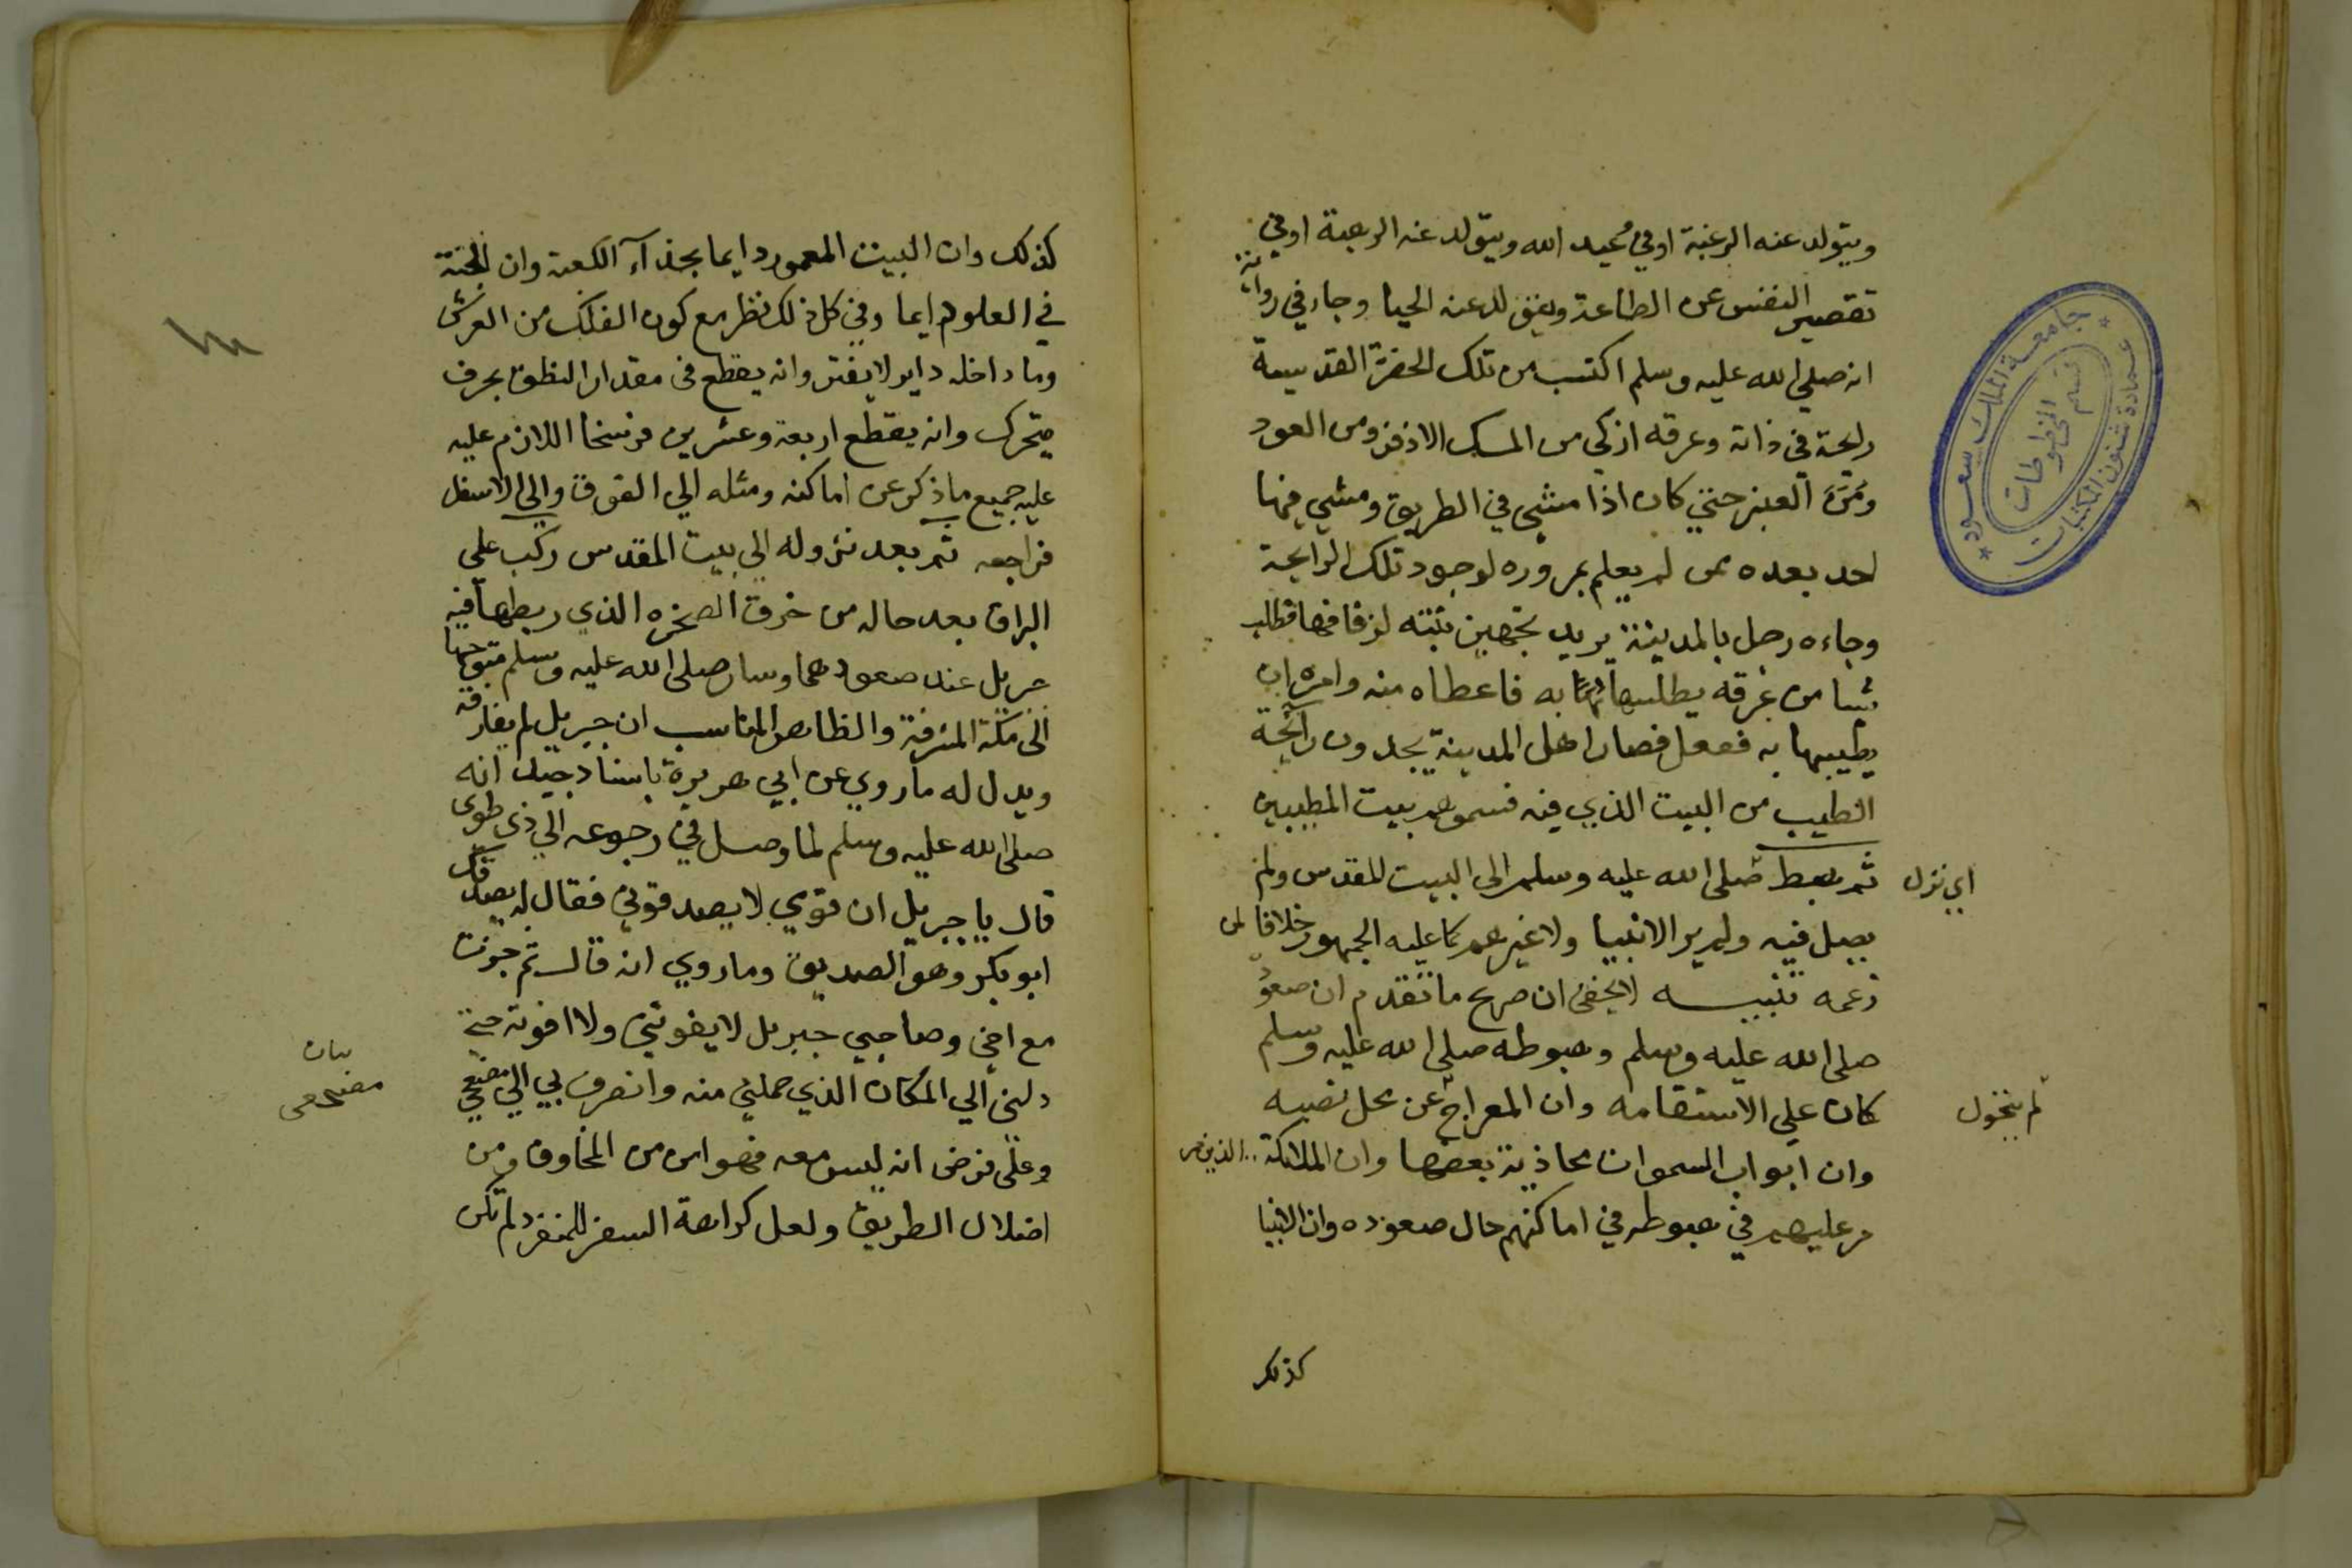 ويتولد عنه الرغبة او في محيد الله ويتولد عنه الرهبة او في
تقصير النفس عن الطاعة ويتولد عنه الحيا وجاء في رواية
انه صلى الله عليه وسلم اكتسب من تلك الحضرة القدسية
رايحة في ذاته وعرقه ازكى من المسك الاذفر ومن العود
ومن العنبر حتى كان اذا مشي في الطريق ومشي فيها
احد بعده ممن لم يعلم بمروره لوجود تلك الرايحة
وجاءه رجل بالمدينة يريد تجهيز بنته لزفافها فطلب
شيا من عرقه يطلبها به فاعطاه منه وامره ان
يطيبها به ففعل فصار اهل المدينة يجدون رائحة
الطيب من البيت الذي فيه فسموهم بيت المطيبين
ثم هبط صلى الله عليه وسلم الى البيت المقدس ولم
اي نزل
يصل فيه ولم ير الانبيا ولا غيرهم كما عليه الجمهور خلافا لمن
زعمه تنبيه لا يخفى ان صريح ما تقدم ان صعوده
صلى الله عليه وسلم وهبوطه صلى الله عليه وسلم
كان على الاستقامه وان المعراج عن محل نصبه
لم يتحول
وان ابواب السموات محاذية بعضها وان الملائكة الذين مر
مر عليهم في هبوطه في اماكنهم حال صعوده وان الانبيا
كذلك
جامعة الملك سعود
قسم المخطوطات
عمادة شئون المكتبات
كذلك وان البيت المعمور دايما بحذاء الكعبة وان الجنة
في العلو دايما وفي كل ذلك نظر مع كون الفلك من العرش
وما داخله داير لا يفتر وانه يقطع في مقدار النطق بحرف
متحرك وانه يقطع اربعة وعشرين فرسخا اللازم عليه
عليه جميع ما ذكر عن اماكنه ومثله الي الفوق والي الاسفل
فراجعه ثم بعد نزوله الي بيت المقدس ركب على
البراق بعد حاله من خرق الصخره الذي ربطها فيه
جبريل عند صعودهما وسار صلى الله عليه وسلم متوجها
الى مكة المشرفة والظاهر المناسب ان جبريل لم يفارقه
ويدل له ما روي عن ابي هريرة باسناد جيد انه
صلى الله عليه وسلم لما وصل في رجوعه الي ذي طوى
قال يا جبريل ان قومي لا يصدقوني فقال له يصدقك
ابو بكر وهو الصديق وما روي انه قال ثم جزت
مع اخي وصاحبي جبريل لا يفوتني ولا افوته حتى
دلني الي المكان الذي حملني منه وانصرف بي الي مضجعي
بيان
وعلى فرض انه ليس معه فهو امن من المخاوف ومن
اضلال الطريق ولعل كراهة السفر للمنفرد لم تكن